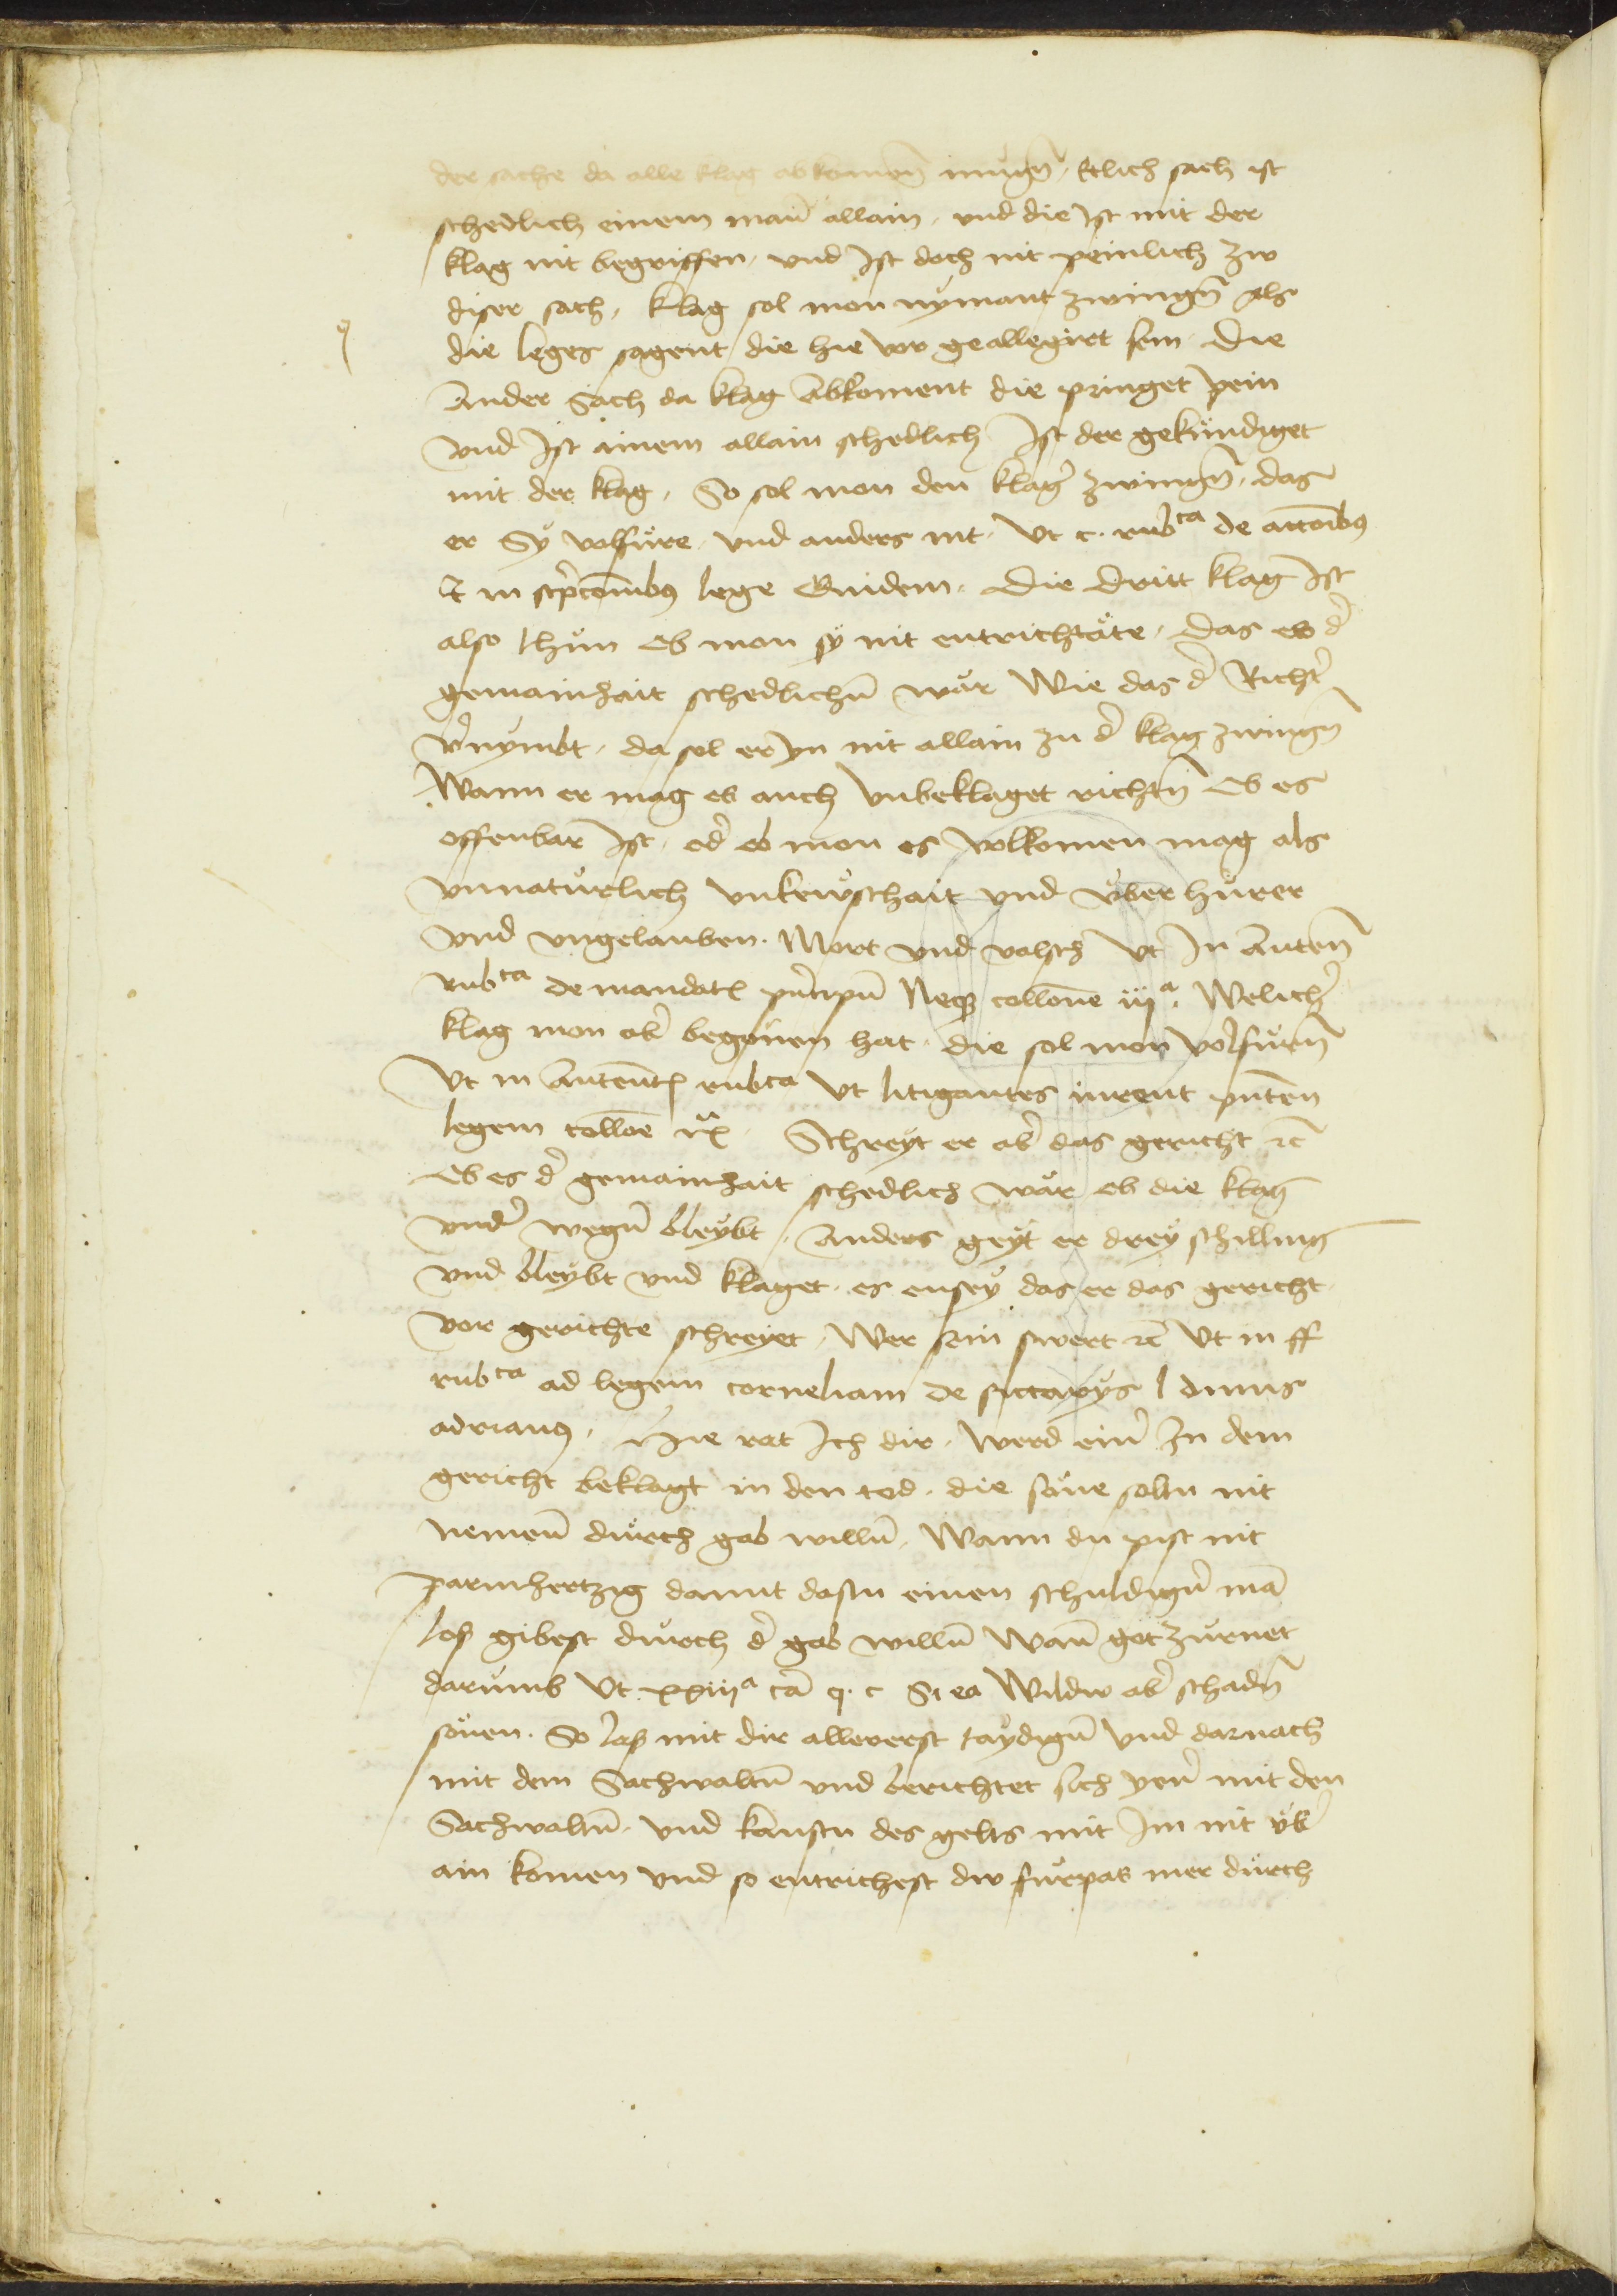 der sache da alle klag abkomen̄ mugn̄ / Etlich sach ist
schedlich einem man̄ allain / vnd die Ist mit der
klag nit begriffen / vnd Ist doch nit peinlich zw
diser sach / klag sol mon nymant zwingn̄ als
die leges sagent die hie vor geallegirt sein Die
Ander Sach da klag Abkoment die pringet pein
Vnd Ist ainem allain schedlich Ist der gekundiget
mit der klag / So sol mon den klager̉ zwingn̄ / das
er Sÿ volfüre / vnd anders nit / Vt c. rubca de accōibꝫ
Et in scp̄comibꝫ lege Quidem / Die dritt klag Ist
also thun Ob mon sÿ nit entrichtäte / das es d̉
gemainhait schedlichn̄ wär Wie das d̉ Richt̉
v̉nymbt / da sol er yn nit allain zu d̉ klag zwingn̄
Wann er mag es auch Vnbeklaget richtn̄ Ob es
offenbar Ist / od̉ ob mon es volkomen mag als
vnnatürlich vnkewschait vnd vber hurer
vnd vngelauben / Mort vnd valsch Vt In Auten̄
rubca de mandatꝭ prīcipū Neqꝫ collōne iija. Welich̉
klag mon ab̉ begunen hat / die sol mon volfurn̄
Vt in Autentꝭ rubca Vt litigantes iurent
legem colloē Schreyt er ab̉ das gericht ꝛc
Ob es d̉ gemainhait schedlich wär ob die klag
vnd̉ wegn̄ bleybt / Anders geyt er drey schilling
vnd bleybt vnd klaget / es ensey das er das gericht
vor gerichte schreyet / Wer sein swert ꝛc Vt in ff
rubca ad legem corneliam de siccarÿs l diuus
adrianꝫ / Hie rat Ich dir / Werd ein̉ In dem
gericht beklagt in den tod / die soltu nit
nemen̄ durch gab willn̄ / Wann du pist nit
parmhertzig damit dastu einen schuldign̄ mā
los gibest durch d̉ gab willn̄ Wan̄ got zurnet
darumb Vt xxiiija cā q. c Si ea Wildw ab̉ schadn̄
So las mit dir allererst taydign̄ vnd darnach
mit dem Sachwaltn̄ vnd berichtet sich yen̉ mit den
Sachwaltn̄ / vnd kanstu des gelts mit Im nit vb̉
ain komen vnd so entrichest dw furpas mer durch